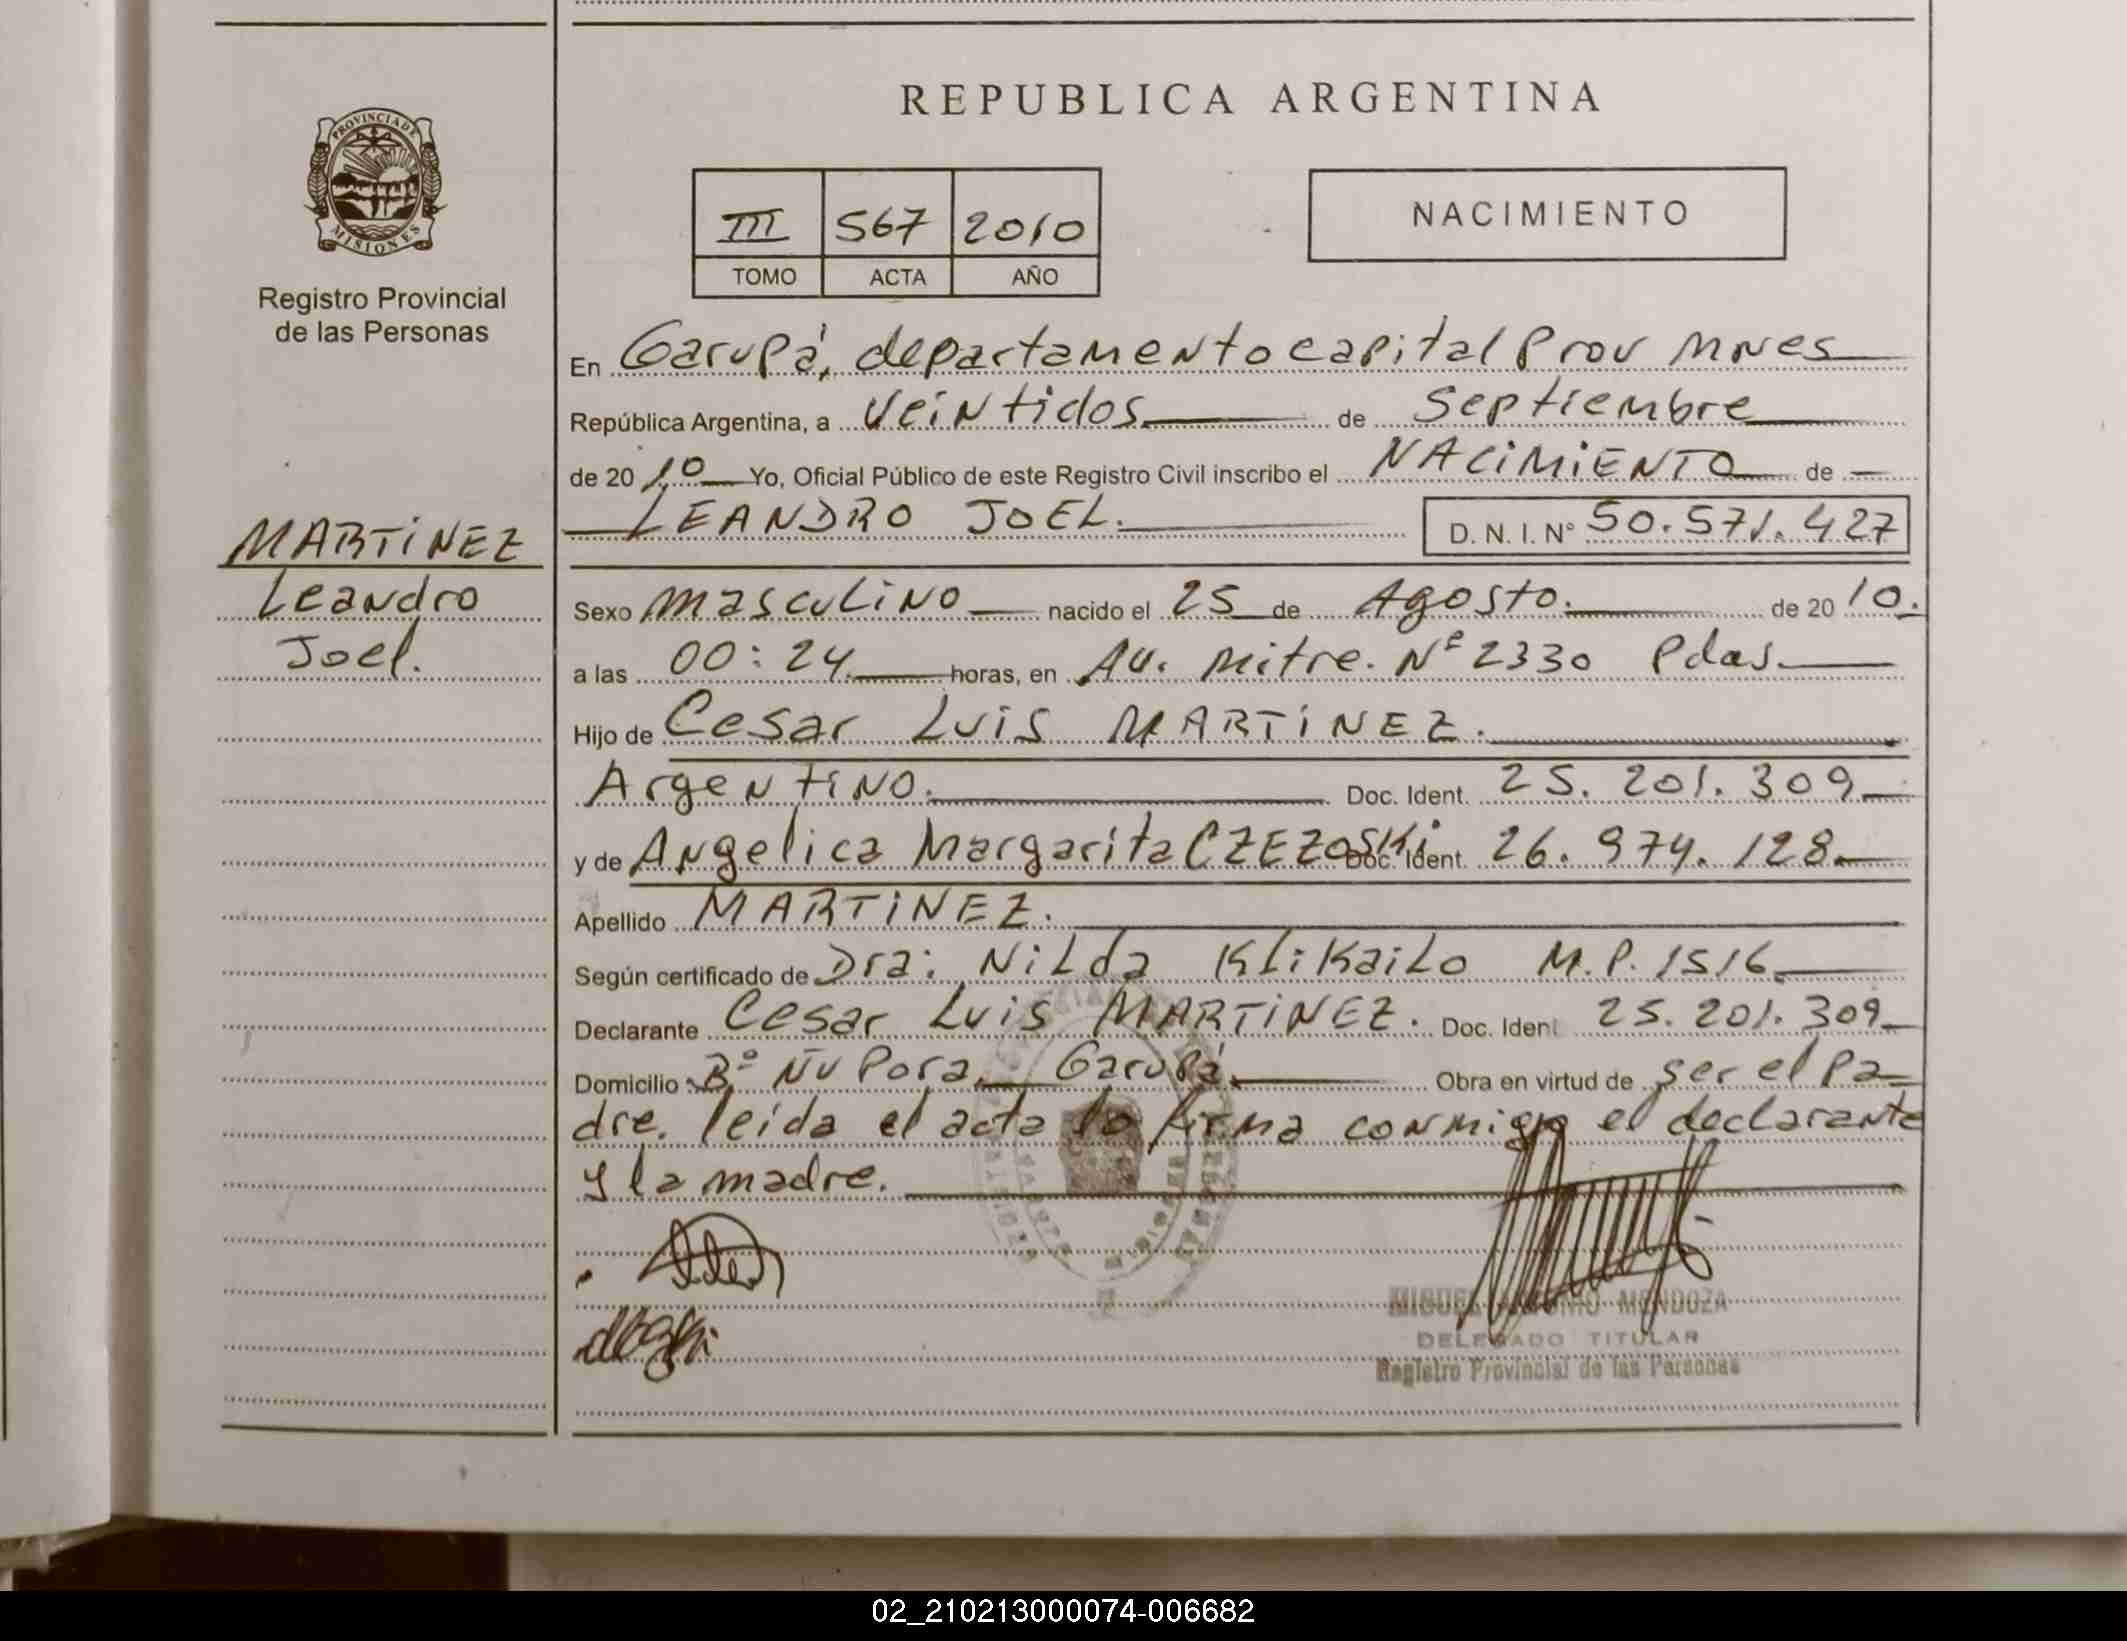 REPUBLICA ARGENTINA
PROVINCIA DE
MISIONES
Registro Provincial
de las Personas
III 567 2010
TOMO ACTA AÑO
NACIMIENTO
En Garupá, departamento capital Prov Mnes
República Argentina, a veintidos de Septiembre
de 20 10 Yo, Oficial Público de este Registro Civil inscribo el NACIMIENTO de
LEANDRO JOEL. D. N. I. N° 50.571.427
MARTINEZ
Leandro
Joel.
Sexo masculino nacido el 25 de Agosto. de 20 10.
a las 00:24 horas, en Av. Mitre. N° 2330 Pdas.
Hijo de Cesar Luis MARTINEZ.
Argentino. Doc. Ident. 25. 201. 309
y de Angelica Margarita CZEZOSKi Doc. Ident. 26. 974. 128.
Apellido MARTINEZ.
Según certificado de Dra: Nilda Klikailo M.P. 1516
Declarante Cesar Luis MARTINEZ. Doc. Ident 25. 201. 309
Domicilio B° Ñu Pora, Garupá. Obra en virtud de ser el pa-
dre. leida el acta la firma conmigo el declarante
y la madre.
MIGUEL ANTONIO MENDOZA
DELEGADO TITULAR
Registro Provincial de las Personas
02_210213000074-006682